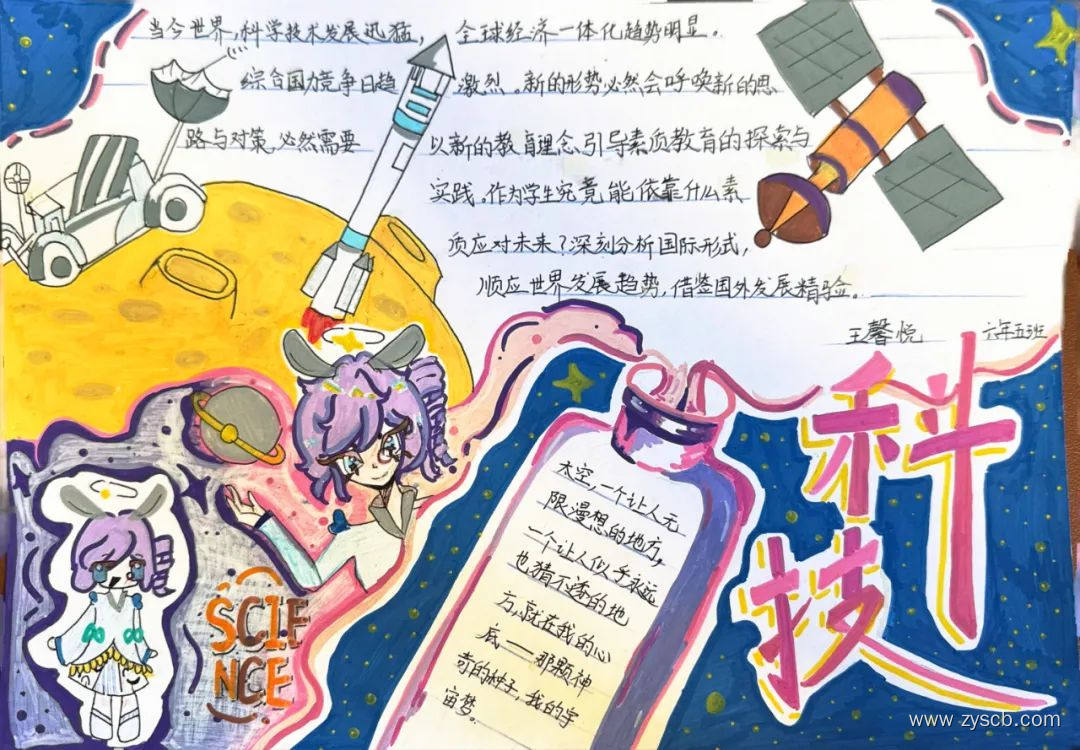 当今世界,科学技术发展迅猛, 全球经济一体化趋势明显。
综合国力竞争日趋 激烈。新的形势必然会呼唤新的思
路与对策,必然需要 以新的教育理念引导素质教育的探索与
实践。作为学生究竟能依靠什么素
质应对未来?深刻分析国际形式,
顺应世界发展趋势,借鉴国外发展精验。
王馨悦 六年五班
科
技
太空,一个让人无
限漫想的地方,
一个让人似乎永远
也猜不透的地
方。就在我的心
底——那颗神
奇的种子,我的宇
宙梦。
SCIE
NCE
www.zyscb.com